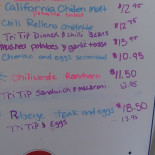 California Chicken Melt $12.95
Chili Relleno omelette $12.95
Tri Tip Dinner & Chili Beans
Mashed potatoes & garlic toast $15.95
Chorizo and eggs scrambled $10.95
Chilaquiles Ranchero $11.50
Tri Tip Sandwich & macaroni 13.95
Ribeye steak and eggs $18.50
Tri Tip & Eggs 13.95